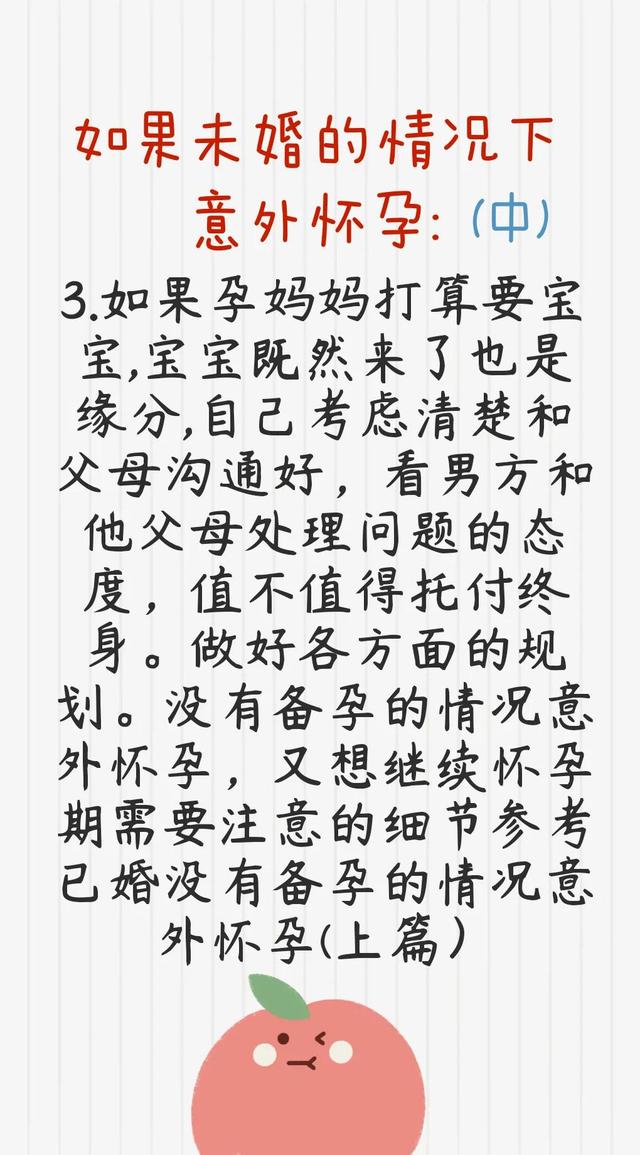 如果未婚的情况下
意外怀孕:(中)
3.如果孕妈妈打算要宝
宝,宝宝既然来了也是
缘分,自己考虑清楚和
父母沟通好，看男方和
他父母处理问题的态
度，值不值得托付终
身。做好各方面的规
划。没有备孕的情况意
外怀孕，又想继续怀孕
期需要注意的细节参考
已婚没有备孕的情况意
外怀孕(上篇）